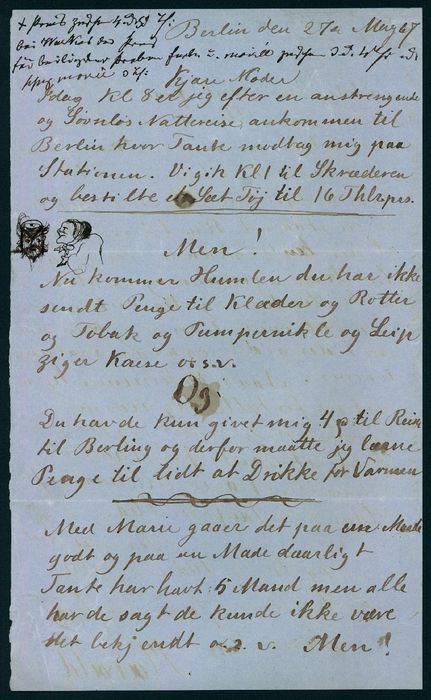 Berlin den 27de May 67
Kjære Moder
Idag Kl 8 er jeg efter en anstrengende
og Søvnløs Nattereise ankommen til
Berlin hvor Tante modtog mig paa
Stationen. Vi gik Kl 1 til Skræderen
og bestilte Sæt Tøj til 16 Thlrprs.
Men!
Nu kommer Humlen du har ikke
sendt Penge til Klæder og Potter
og Tobak og Pumpernikle og Leip
ziger Kaese o.s.v.
Og
Du havde kun givet mig 4 til Reise
til Berling og derfor maatte jeg laane
Penge til lidt at Drikke for Varmen
Med Marie gaaer det paa een Maade
godt og paa en Made daarligt
Tante har havt 5 Mand men alle
har de sagt de kunde ikke være
det bekjendt o.s.v. Men!